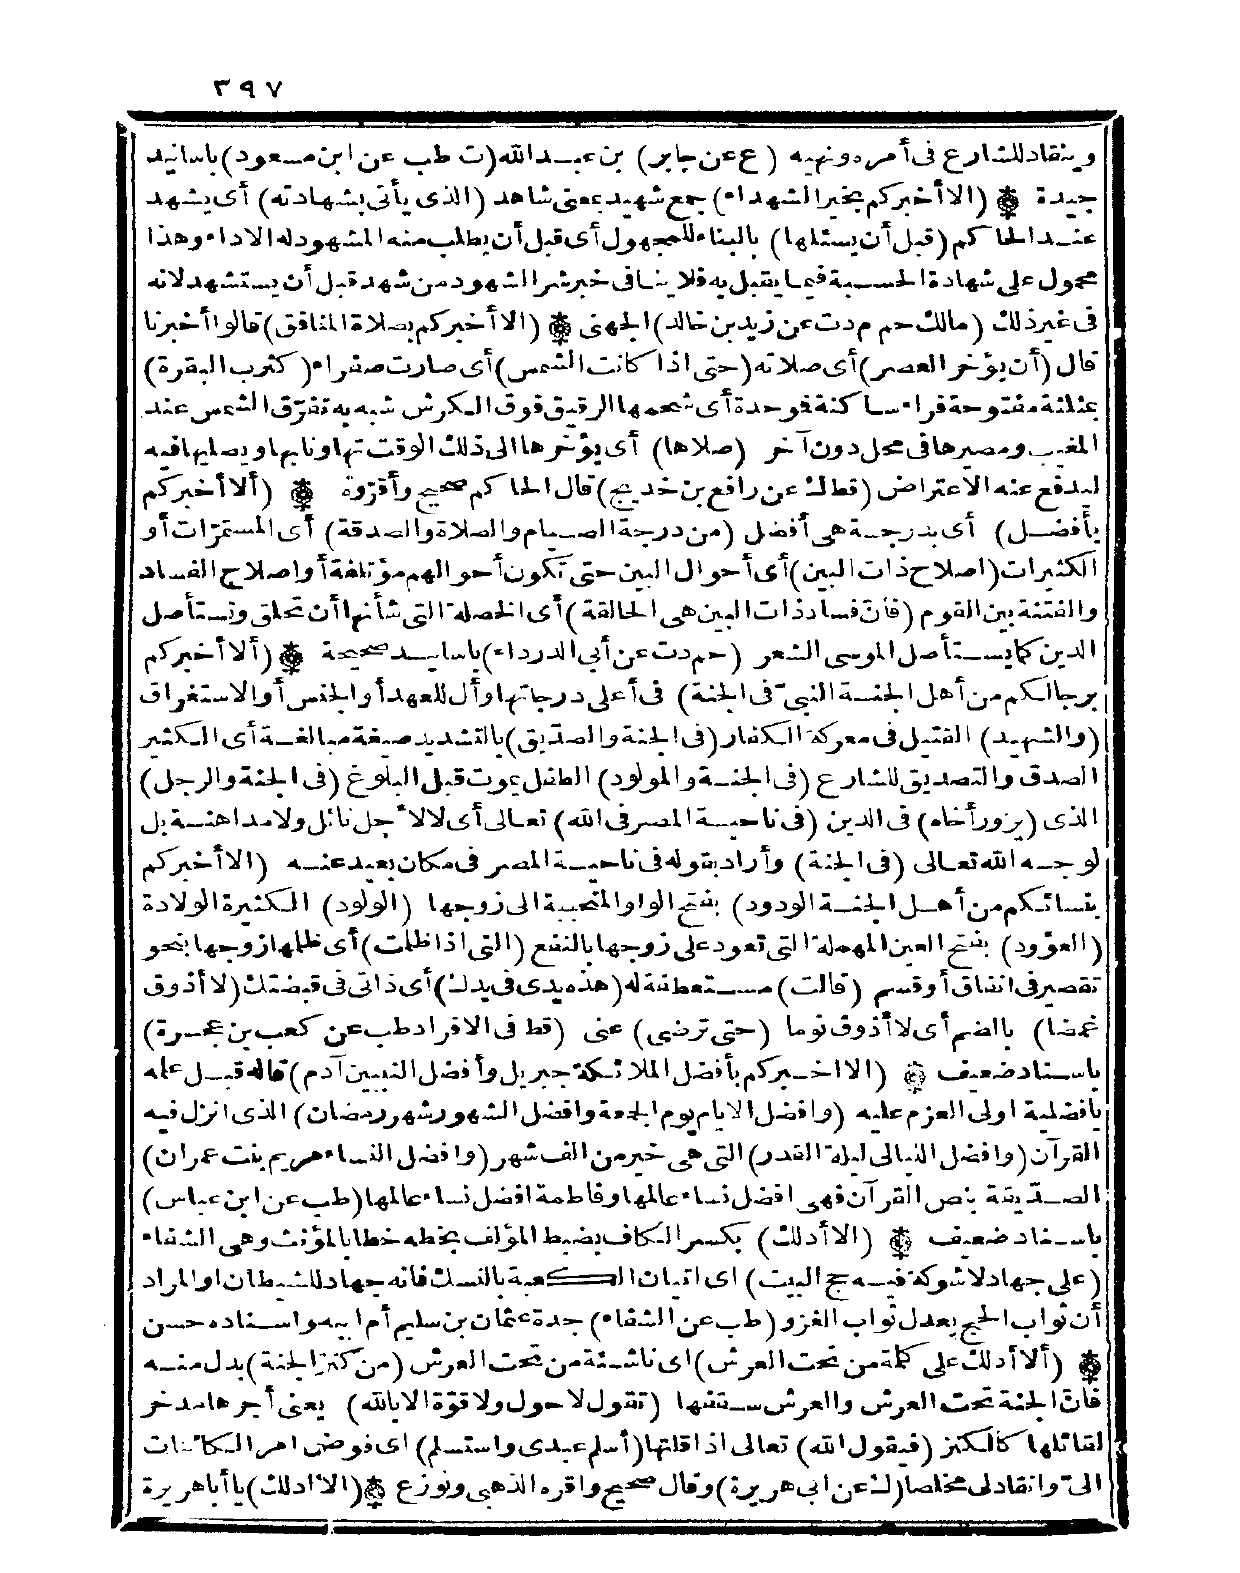 ٣٩٧
وينقاد للشارع فى أمره ونهيه (ع عن جابر) بن عبد الله (ت طب عن ابن مسعود) باسانيد
جيدة (الا أخبركم بخير الشهداء) جمع شهيد بمعنى شاهد (الذى يأتى بشهادته) أى يشهد
عند الحاكم (قبل أن يسئلها) بالبناء للمجهول أى قبل أن يطلب منه المشهود له الاداء وهذا
محمول على شهادة الحسبة فيما يقبل به فلا ينافى خبر شر الشهود من شهد قبل أن يستشهد لانه
فى غير ذلك (مالك حم م د ت عن زيد بن خالد) الجهنى (الا أخبركم بصلاة المنافق) قالوا أخبرنا
قال (أن يؤخر العصر) أى صلاته (حتى اذا كانت الشمس) أى صارت صفراء (كثرب البقرة)
بمثلثة مفتوحة فراء ساكنة فوحدة أى شحمها الرقيق فوق الكرش شبه به تفرّق الشمس عند
المغيب ومصيرها فى محل دون آخر (صلاها) أى يؤخرها الى ذلك الوقت تهاونا بها ويصليها فيه
ليدفع عنه الاعتراض (قط ك عن رافع بن خديج) قال الحاكم صحيح وأقرّوه (ألا أخبركم
بأفضل) أى بدرجة هى أفضل (من درجة الصيام والصلاة والصدقة) أى المستمرّات أو
الكثيرات (اصلاح ذات البين) أى أحوال البين حتى تكون أحوالهم مؤتلفة أو اصلاح الفساد
والفتنة بين القوم (فان فساد ذات البين هى الحالقة) أى الخصلة التى شأنها أن تحلق وتستأصل
الدين كما يستأصل الموسى الشعر (حم د ت عن أبى الدرداء) باسانيد صحيحة (ألا أخبركم
برجالكم من أهل الجنة النبىّ فى الجنة) فى أعلى درجاتها وأل للعهد أو الجنس أو الاستغراق
(والشهيد) القتيل فى معركة الكفار (فى الجنة والصدّيق) بالتشديد صيغة مبالغة أى الكثير
الصدق والتصديق للشارع (فى الجنة والمولود) الطفل يموت قبل البلوغ (فى الجنة والرجل)
الذى (يزور أخاه) فى الدين (فى ناحية المصر فى الله) تعالى أى لا لاجل نائل ولا مداهنة بل
لوجه الله تعالى (فى الجنة) وأراد بقوله فى ناحية المصر فى مكان بعيد عنه (الا أخبركم
بنسائكم من أهل الجنة الودود) بفتح الواو المتحببة الى زوجها (الولود) الكثيرة الولادة
(العؤود) بفتح العين المهملة التى تعود على زوجها بالنفع (التى اذا ظلمت) أى ظلمها زوجها بنحو
تقصير فى انفاق أو قسم (قالت) مستعطفة له (هذه يدى فى يدك) أى ذاتى فى قبضتك (لا أذوق
غمضا) بالضم أى لا أذوق نوما (حتى ترضى) عنى (قط فى الافراد طب عن كعب بن عجرة)
باسناد ضعيف (الا اخبركم بأفضل الملائكة جبريل وأفضل النبيين آدم) قاله قبل علمه
بافضلية اولى العزم عليه (وافضل الايام يوم الجمعة وافضل الشهور شهر رمضان) الذى انزل فيه
القرآن (وافضل الليالى ليلة القدر) التى هى خير من الف شهر (وافضل النساء مريم بنت عمران)
الصدّيقة بنص القرآن فهى افضل نساء عالمها وفاطمة افضل نساء عالمها (طب عن ابن عباس)
باسناد ضعيف (الا أدلك) بكسر الكاف بضبط المؤلف بخطه خطابا لمؤنث وهى الشفاء
(على جهاد لا شوكة فيه حج البيت) اى اتيان الكعبة بالنسك فانه جهاد للشيطان او المراد
أن ثواب الحج يعدل ثواب الغزو (طب عن الشفاء) جدة عثمان بن سليم أم ابيه واسناده حسن
(ألا أدلك على كلمة من تحت العرش) اى ناشئة من تحت العرش (من كنز الجنة) بدل منه
فان الجنة تحت العرش والعرش سقفها (تقول لا حول ولا قوّة الا بالله) يعنى أجرها مدخر
لقائلها كالكنز (فيقول الله) تعالى اذا قلتها (أسلم عبدى واستسلم) اى فوض امر الكائنات
الىّ وانقاد لى مخلصا (ك عن ابى هريرة) وقال صحيح واقره الذهبى ونوزع (الا ادلك) يا أبا هريرة